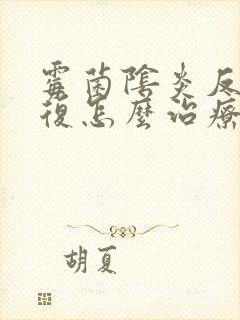 霉菌陰炎反
復怎麼治療
胡夏